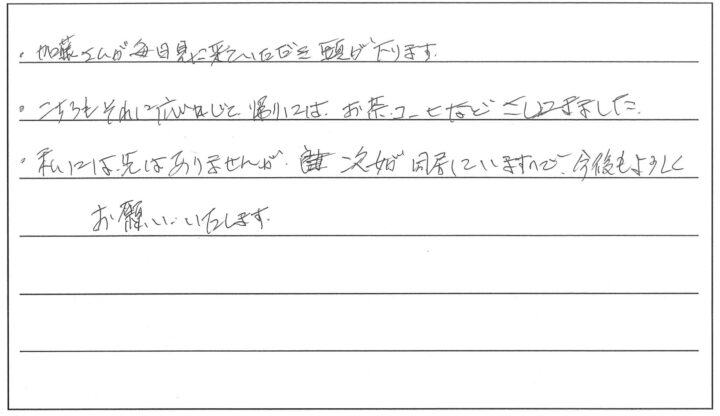 ・加藤さんが毎日見に来ていただき頭が下ります.
・こちらもそれに応じて、帰りには、お茶、コーヒなどさしあました.
・私には先はありませんが、次女が同居していますので、今後もよろしく
お願いいたします.